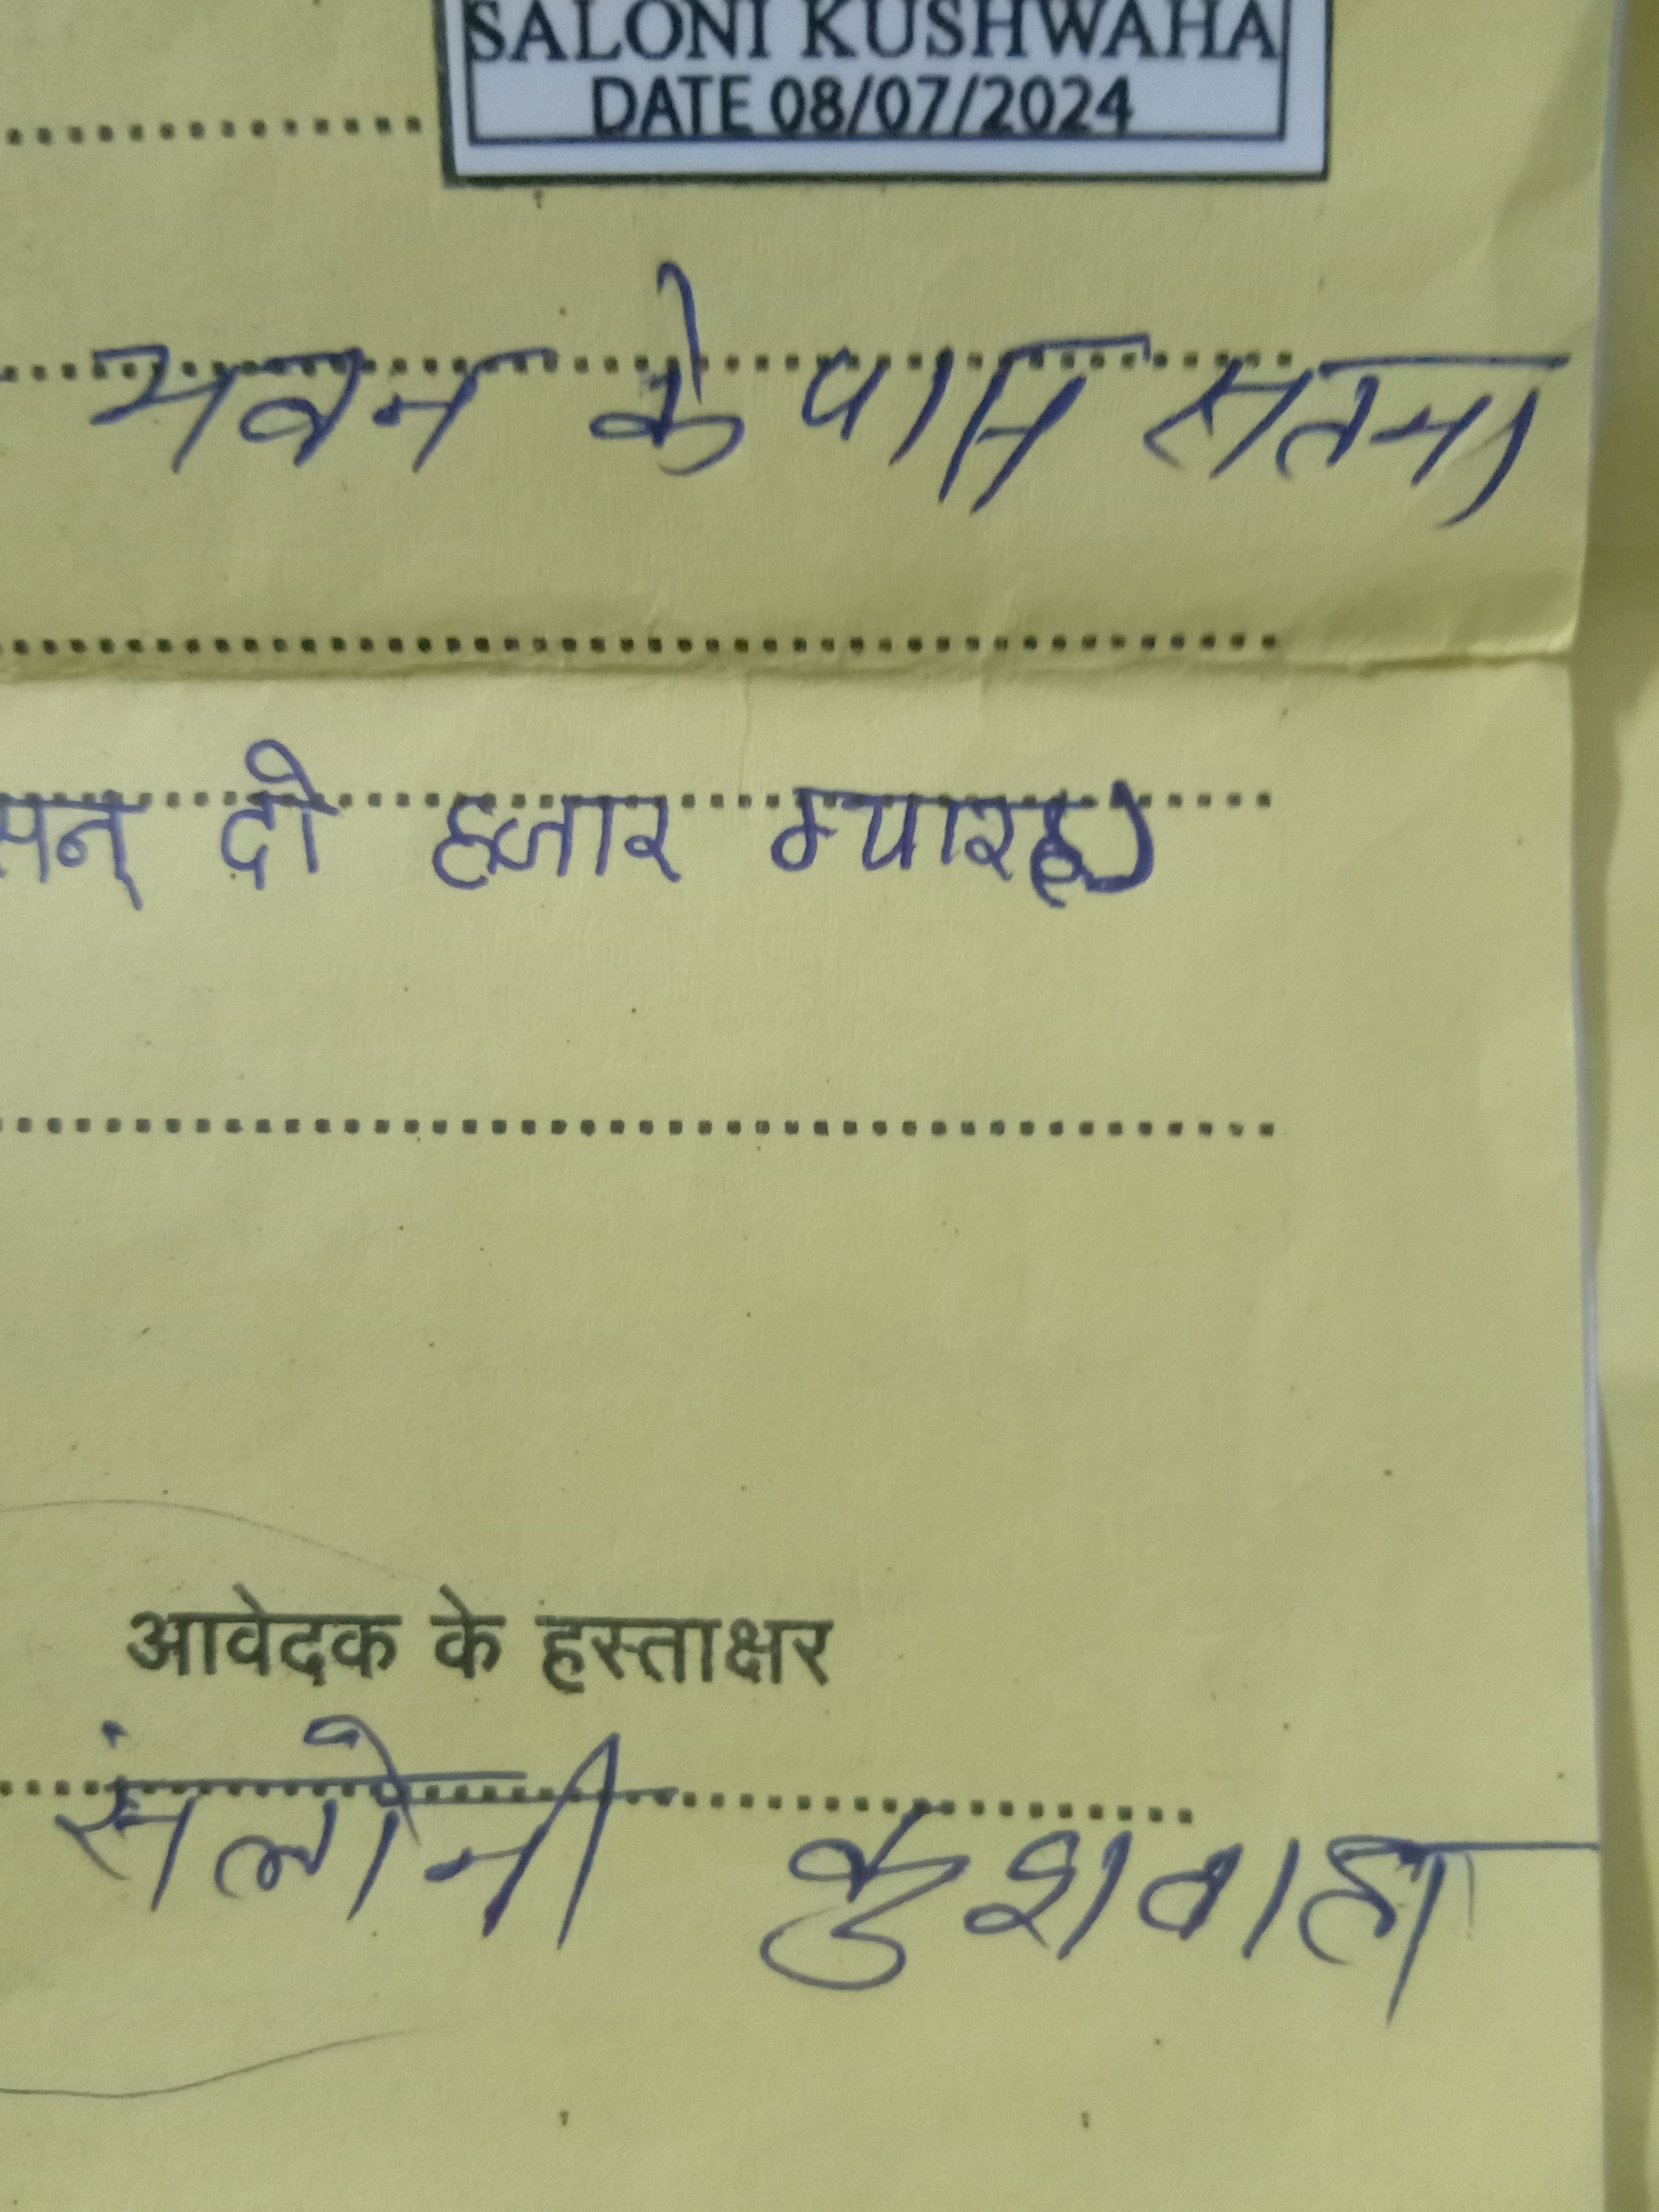 SALONI KUSHWAHA
DATE 08/07/2024
भवन के पास सतना
सन् दो हजार ग्यारह)
आवेदक के हस्ताक्षर
संलोनी कुशवाहा